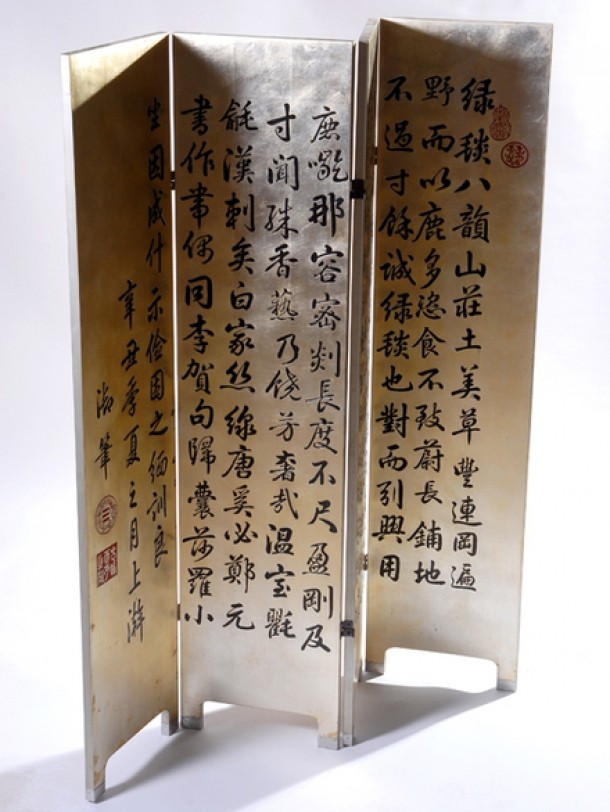 绿毯八韻山莊土美草豐連岡遍
野而以鹿多恣食不致蔚長鋪地
不過寸餘誠绿毯也對而引興用
鹿嚙那容密剡長度不尺盈剛及
寸聞殊香爇乃饶芳奢哉温室氍
毹漢刺矣白家丝線唐奚必鄭元
書作帶偶同李賀句歸囊莎羅小
坐因成什示儉因之缅訓良
辛丑季夏之月上澣
御筆